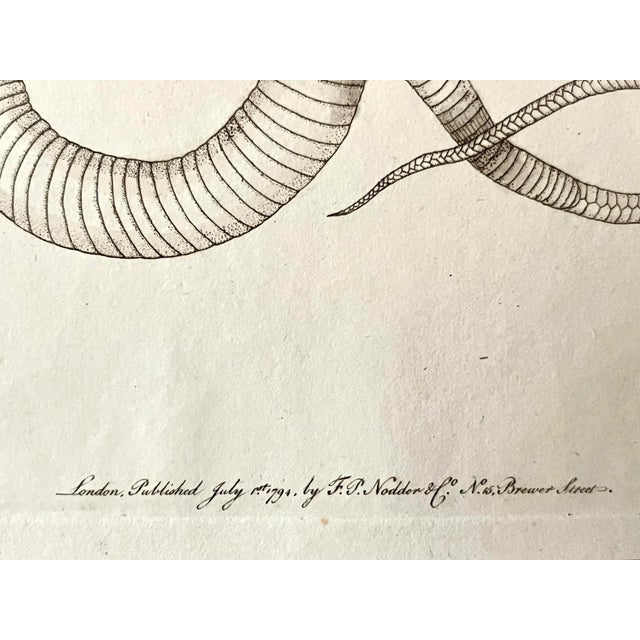 London, Published July 1st 1794, by F. P. Nodder & Co. No. 15, Brewer Street.